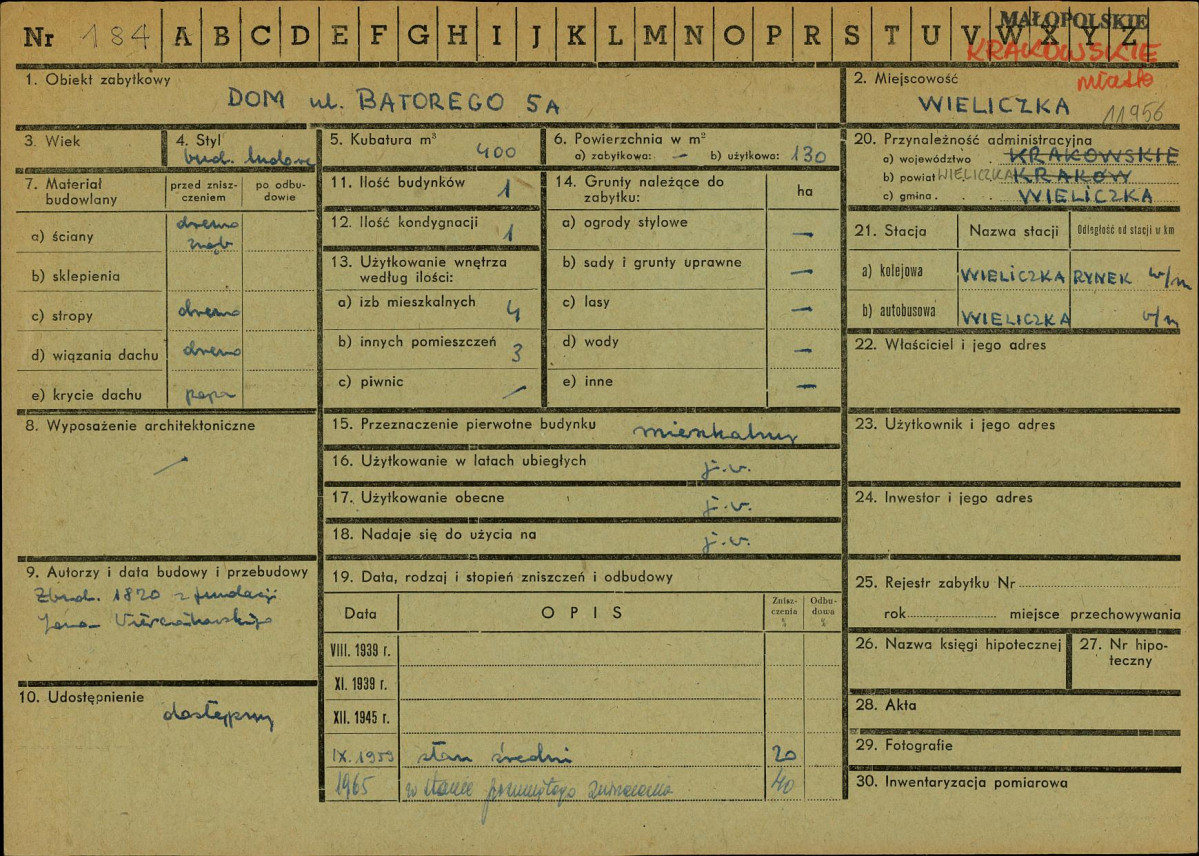 Nr 184 A B C D E F G H I J K L M N O P R S T U V W X Y Z
MAŁOPOLSKIE
KRAKOWSKIE
miasto
1. Obiekt zabytkowy
DOM ul. BATOREGO 5A
2. Miejscowość
WIELICZKA 11956
3. Wiek
4. Styl
bud. ludowe
5. Kubatura m³ 400
6. Powierzchnia w m²
a) zabytkowa: — b) użytkowa: 130
20. Przynależność administracyjna
a) województwo . KRAKOWSKIE
b) powiat WIELICZKA KRAKÓW
c) gmina . . . WIELICZKA
7. Materiał budowlany
przed zniszczeniem
po odbudowie
a) ściany drewno
zrąb
b) sklepienia
c) stropy drewno
d) wiązania dachu drewno
e) krycie dachu papa
11. Ilość budynków 1
12. Ilość kondygnacji 1
13. Użytkowanie wnętrza
według ilości:
a) izb mieszkalnych 4
b) innych pomieszczeń 3
c) piwnic —
14. Grunty należące do
zabytku:
ha
a) ogrody stylowe —
b) sady i grunty uprawne —
c) lasy —
d) wody —
e) inne —
21. Stacja Nazwa stacji Odległość od stacji w km
a) kolejowa WIELICZKA RYNEK w/m
b) autobusowa WIELICZKA w/m
22. Właściciel i jego adres
8. Wyposażenie architektoniczne
—
15. Przeznaczenie pierwotne budynku mieszkalny
16. Użytkowanie w latach ubiegłych j.w.
17. Użytkowanie obecne j.w.
18. Nadaje się do użycia na j.w.
23. Użytkownik i jego adres
24. Inwestor i jego adres
9. Autorzy i data budowy i przebudowy
Zbud. 1820 z fundacji
Jana
10. Udostępnienie
dostępny
19. Data, rodzaj i stopień zniszczeń i odbudowy
Data OPIS Zniszczenia % Odbudowa %
VIII. 1939 r.
XI. 1939 r.
XII. 1945 r.
IX. 1959 stan średni 20
1965 w stanie posuniętego zniszczenia 40
25. Rejestr zabytku Nr
rok miejsce przechowywania
26. Nazwa księgi hipotecznej
27. Nr hipoteczny
28. Akta
29. Fotografie
30. Inwentaryzacja pomiarowa